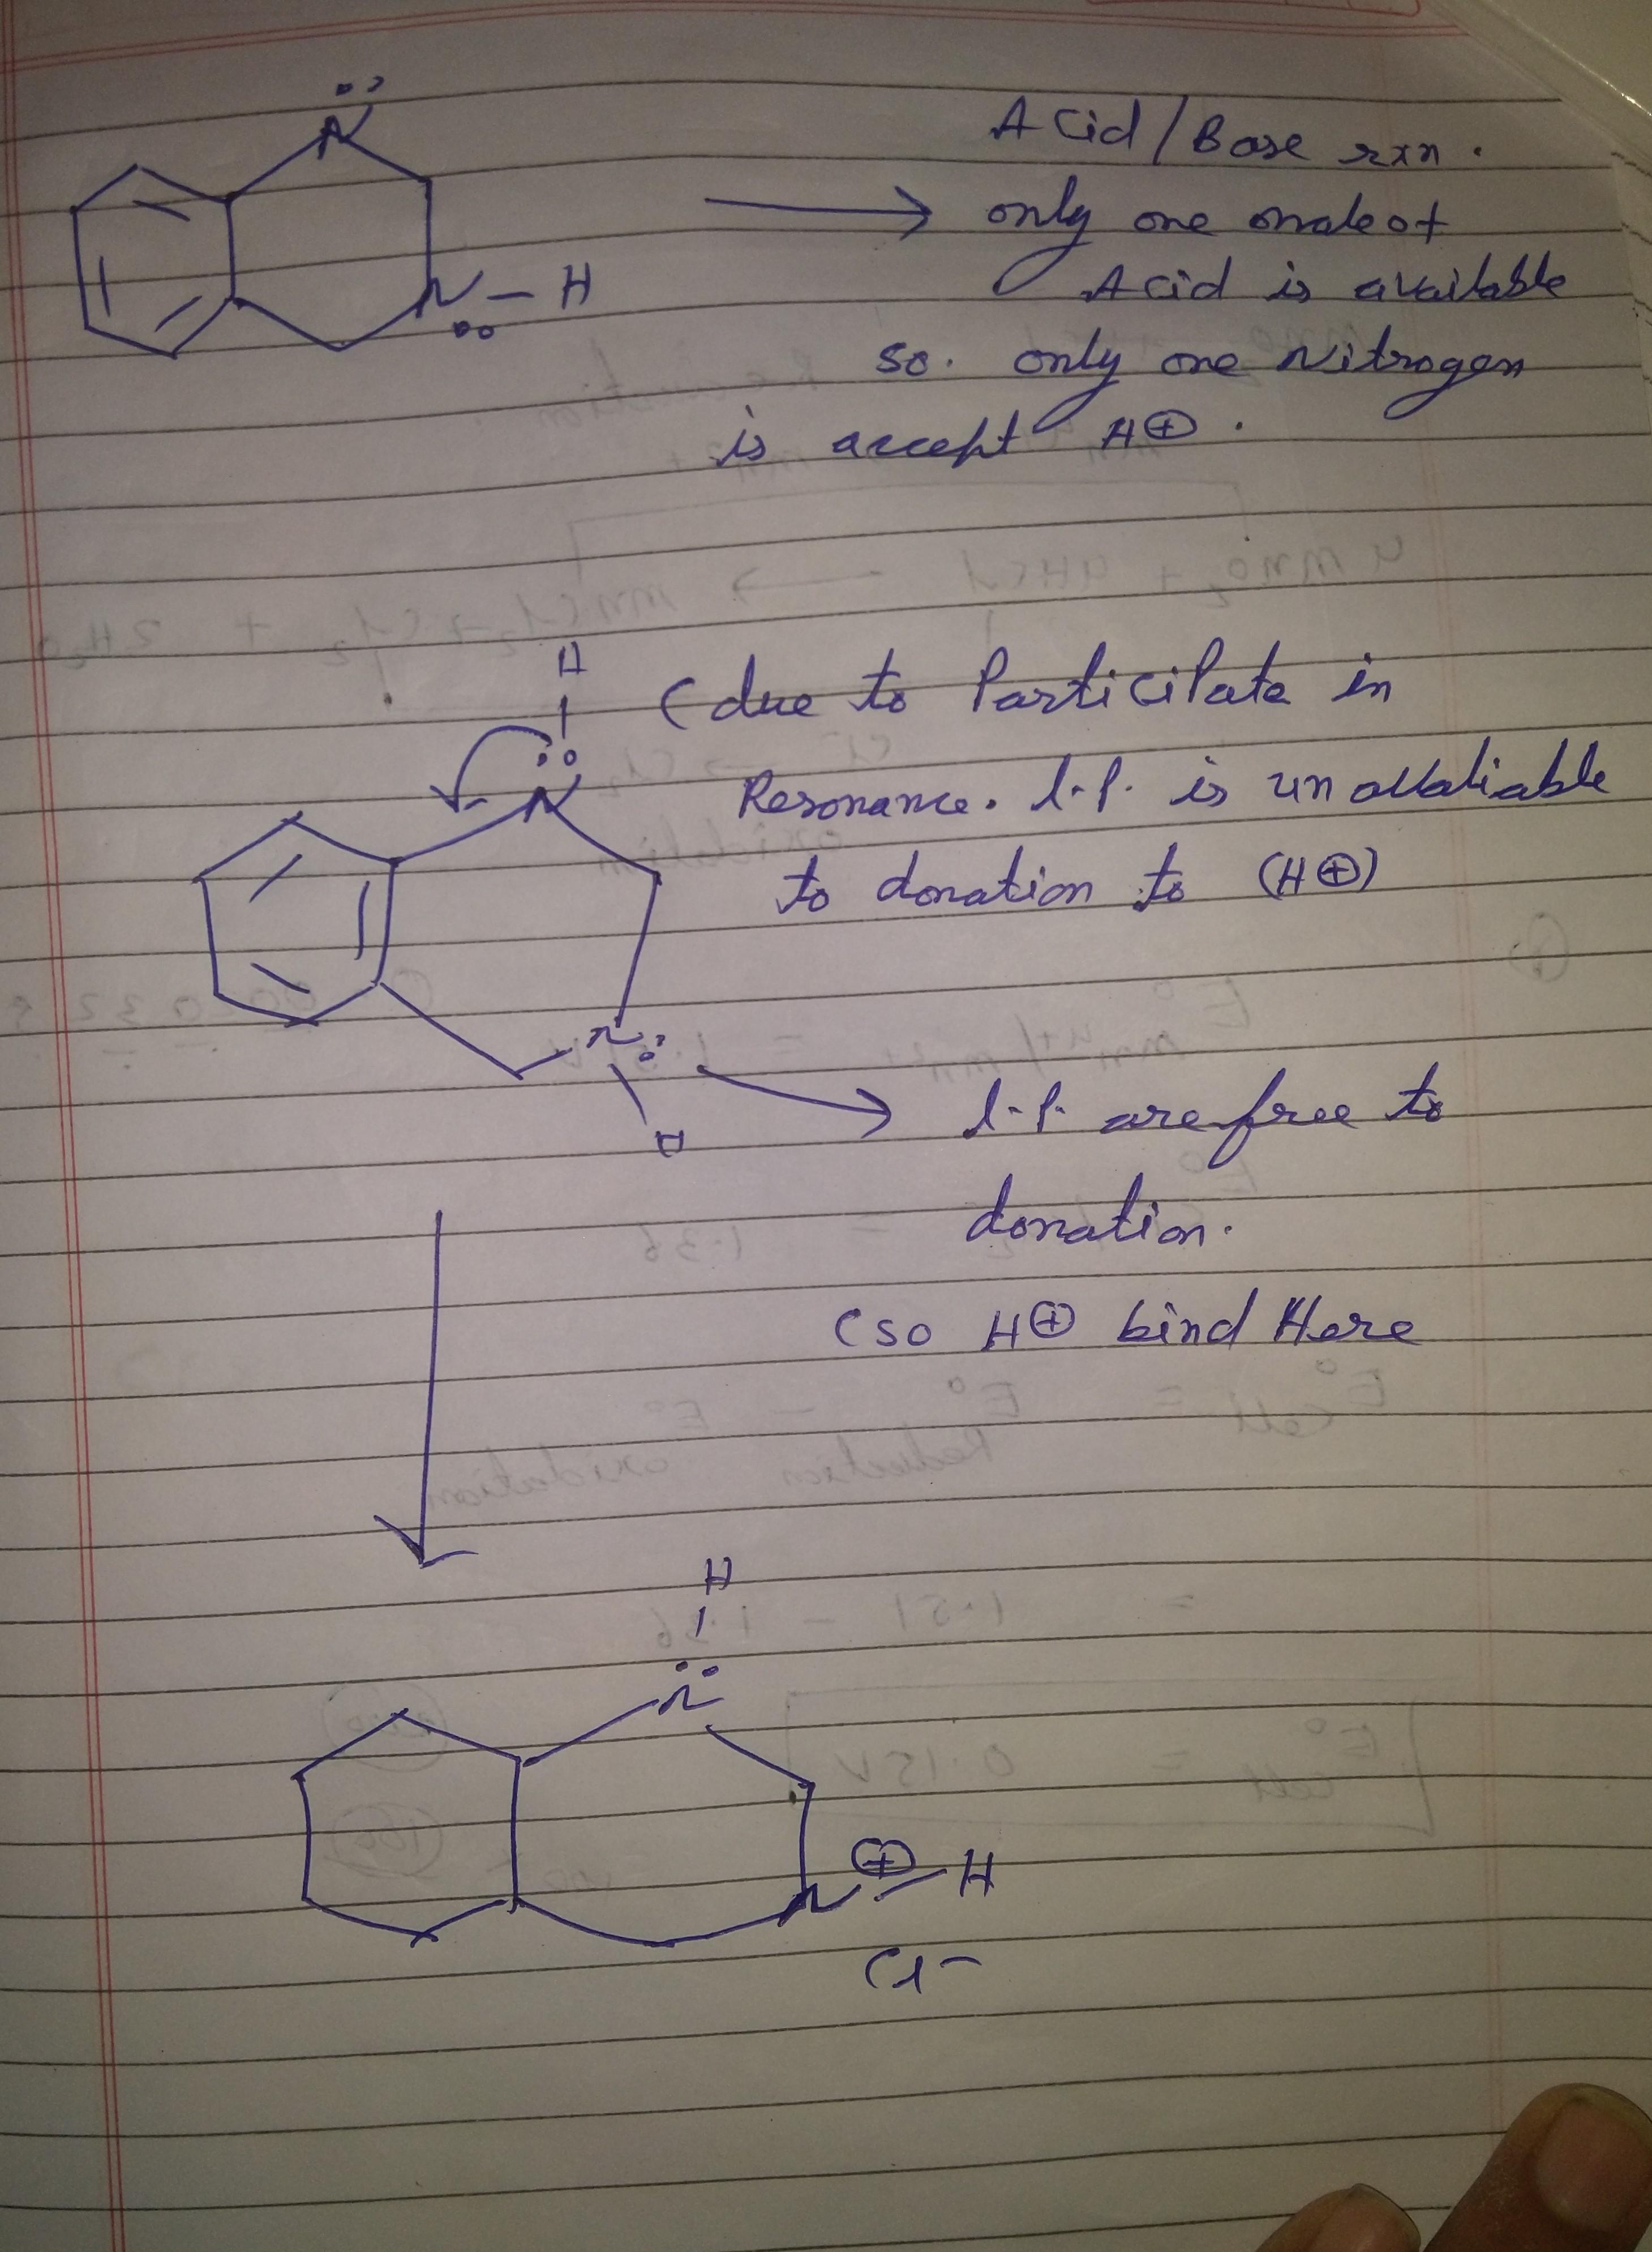 N
N - H
Acid/Base rxn.
only one mole of
Acid is available
so. only one Nitrogen
is accept H⊕.
H
(due to Participate in
N
Resonance. l.p. is unavaliable
to donation to (H⊕)
N
H
l.p. are free to
donation.
(so H⊕ bind Here
H
N
⊕
N - H
Cl-